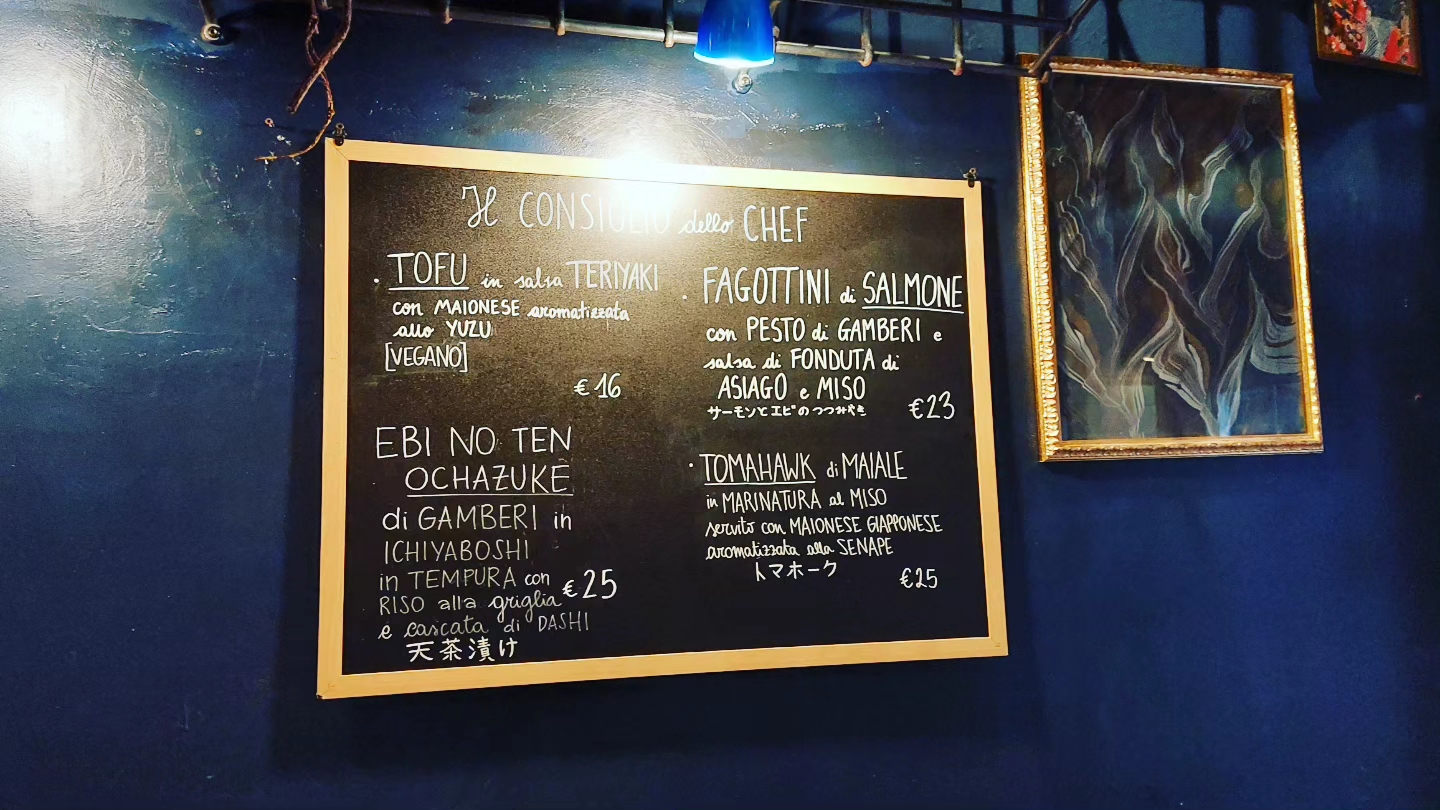 Il CONSIGLIO dello CHEF
· TOFU in salsa TERIYAKI
con MAIONESE aromatizzata
allo YUZU
[VEGANO]
€ 16
EBI NO TEN
OCHAZUKE
di GAMBERI in
ICHIYABOSHI
in TEMPURA con
RISO alla griglia
e cascata di DASHI
€25
天茶漬け
· FAGOTTINI di SALMONE
con PESTO di GAMBERI e
salsa di FONDUTA di
ASIAGO e MISO
サーモンとエビのつつみやき
€23
· TOMAHAWK di MAIALE
in MARINATURA al MISO
servito con MAIONESE GIAPPONESE
aromatizzata alla SENAPE
トマホーク
€25